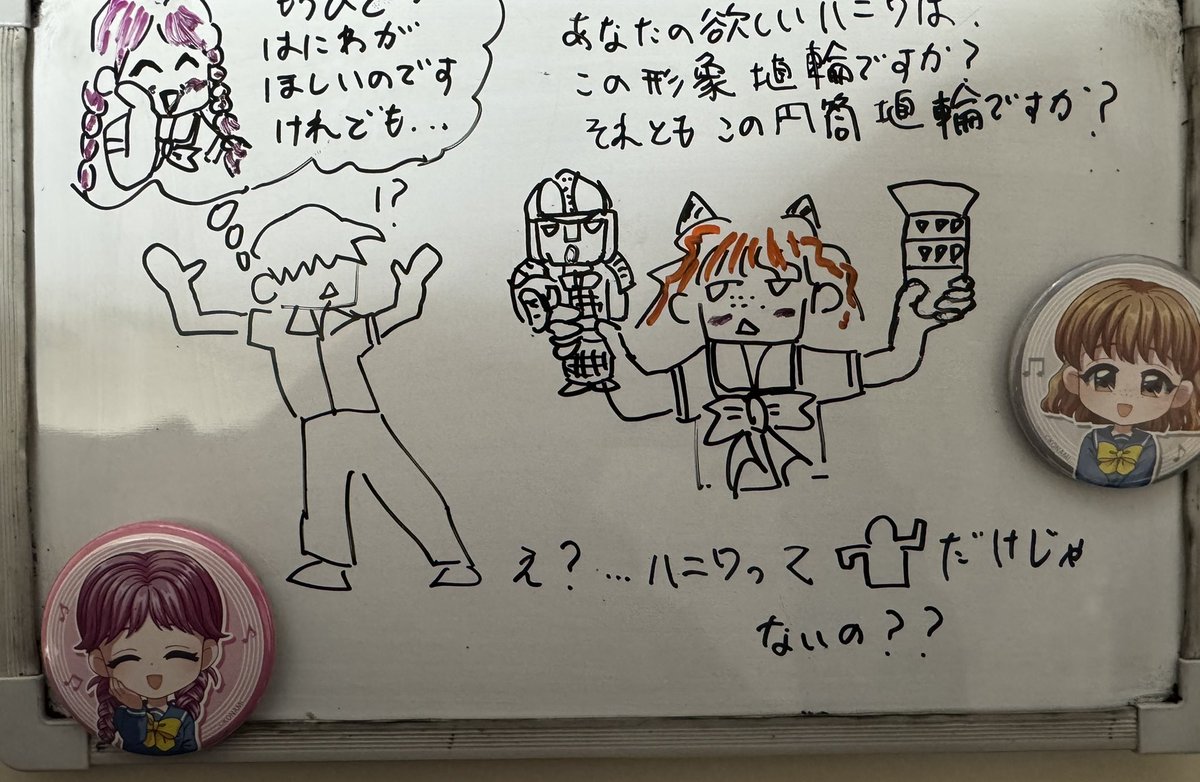 もうひとつ
はにわが
ほしいのです
けれども...
あなたの欲しいハニワは、
この形象埴輪ですか?
それともこの円筒埴輪ですか?
!?
え?...ハニワって
だけじゃ
ないの??
©KONAMI
©KONAMI